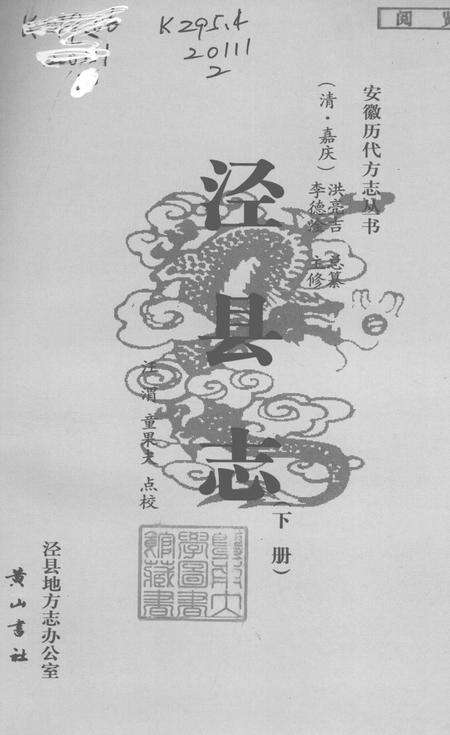 K295.4
20111
2
阅览
安徽历代方志丛书
（清·嘉庆）
洪亮吉 总纂
李德淦 主修
泾县志
（下册）
汪渭 童果夫 点校
泾县地方志办公室
黄山书社
學圖書
館藏書